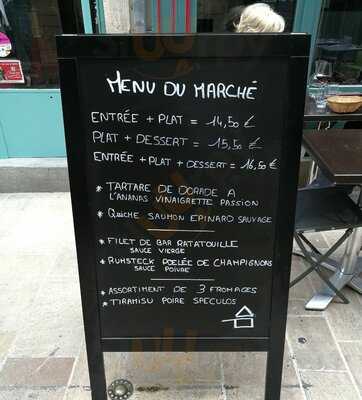 MENU DU MARCHÉ
ENTRÉE + PLAT = 14,50 €
PLAT + DESSERT = 15,50 €
ENTRÉE + PLAT + DESSERT = 16,50 €
* TARTARE DE DORADE A
L'ANANAS VINAIGRETTE PASSION
* QUICHE SAUMON EPINARD SAUVAGE
* FILET DE BAR RATATOUILLE
SAUCE VIERGE
* RUMSTECK POELÉE DE CHAMPIGNONS
SAUCE POIVRE
* ASSORTIMENT DE 3 FROMAGES
* TIRAMISU POIRE SPECULOS